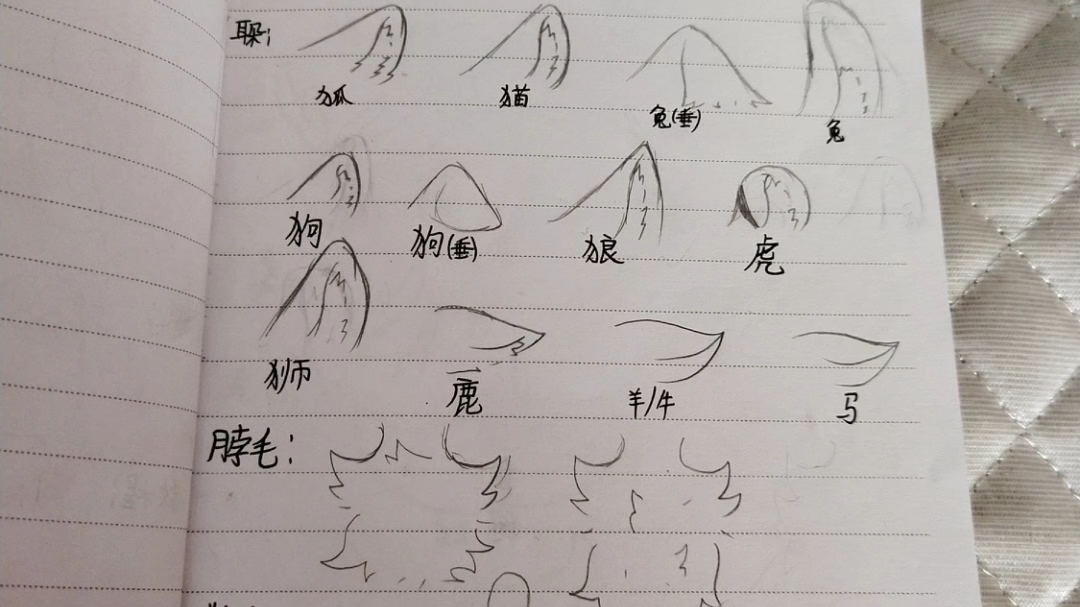 耳朵:
狐 猫 兔(垂) 兔
狗 狗(垂) 狼 虎
狮 鹿 羊/牛 马
脖毛: